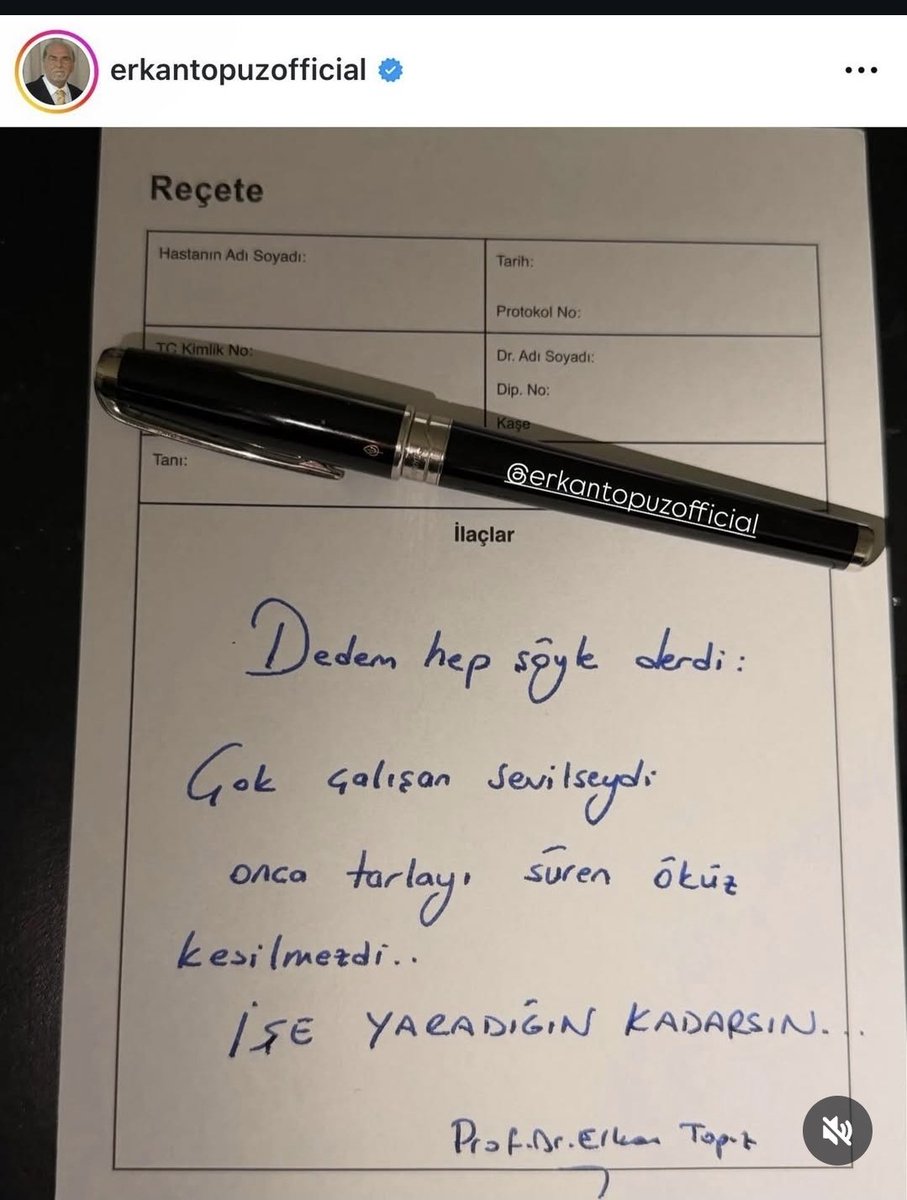 erkantopuzofficial
Reçete
Hastanın Adı Soyadı:
Tarih:
Protokol No:
TC Kimlik No:
Dr. Adı Soyadı:
Dip. No:
Kaşe
Tanı:
@erkantopuzofficial
İlaçlar
Dedem hep söyle derdi:
Çok çalışan sevilseydi
onca tarlayı süren öküz
kesilmezdi..
İŞE YARADIĞIN KADARSIN...
Prof.Dr.Erkan Topuz